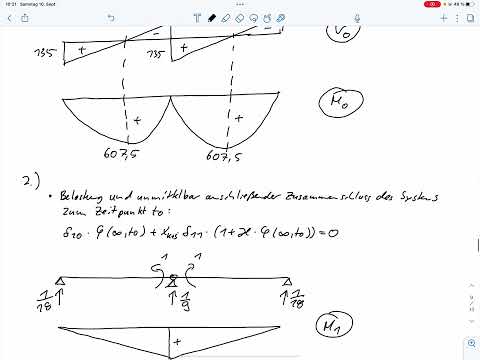 10:31 Samstag 10. Sept.
49 %
V₀
135 + - 135 + -
M₀
+ +
607,5 607,5
2.)
• Belastung und unmittelbar anschließender Zusammenschluss des Systems
zum Zeitpunkt t₀:
δ₁₀ · φ(∞,t₀) + X₁ₙₛ δ₁₁ · (1 + ϰ · φ(∞,t₀)) = 0
1 1
1/18 1/9 1/18
M₁
+